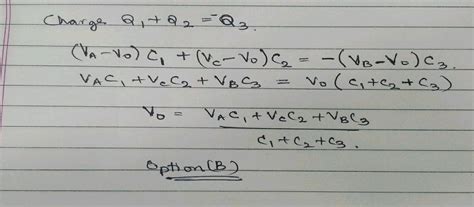 Charge Q₁ + Q₂ = -Q₃.
(VA-V0) C₁ + (Vc-V0) C₂ = -(VB-V0) C₃.
VAC₁ + VcC₂ + VBC₃ = V0 (C₁+C₂+C₃)
V0 = VAC₁ + VcC₂ + VBC₃
C₁ + C₂ + C₃ .
Option (B)